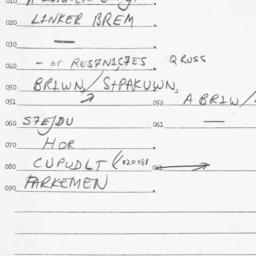 020 LINKER BREM
030 —
040 - or RES7N1C7ES QRUSS
050 BR1WN/StPAKUWN,
051 052 A BR1W/
060 S7EJDU 061 —
070 HDR
080 CUPUDLT
090 FARKEMEN